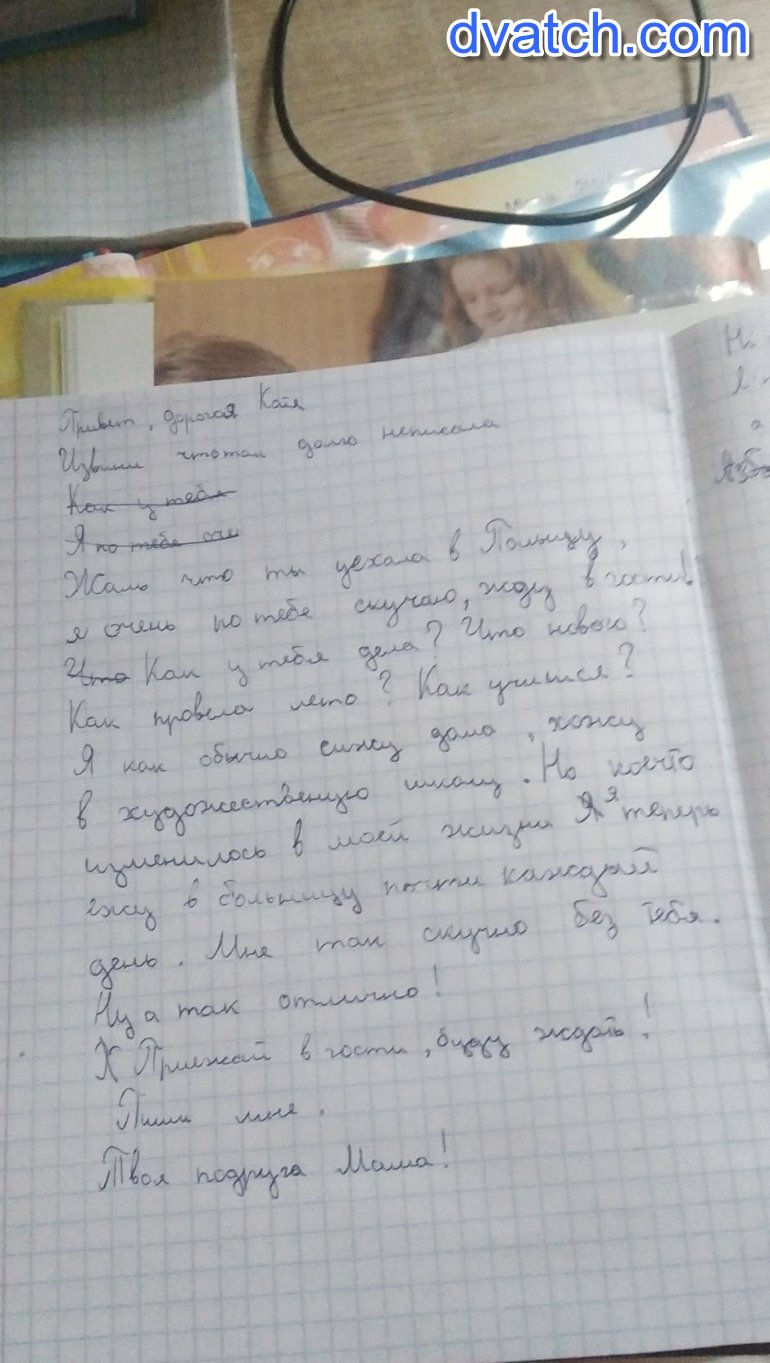 dvatch.com
Привет, дорогая Катя
Извини чтотак долго неписала
Как у тебя
Я по тебе оче
Жаль что ты уехала в Польшу,
я очень по тебе скучаю, жду в гости
Что Как у тебя дела? Что нового?
Как провела лето? Как учишся?
Я как обычно сижу дома, хожу
в художественную школу. Но коечто
изменилось в моей жизни Я я теперь
в больницу почти каждый
день. Мне так скучно без тебя.
Ну а так отлично!
Приежай в гости, буду ждать!
Пиши мне.
Твоя подруга Маша!
Hi